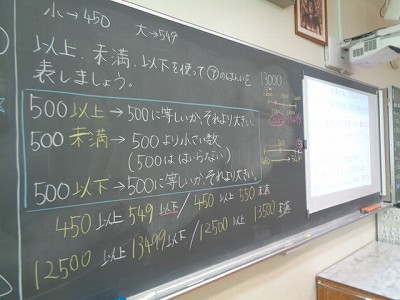 小→450 大→549
以上、未満、以下を使って㋐のはんいを
表しましょう。
500以上→500に等しいか、それより大きい。
500未満→500より小さい数
(500ははいらない)
500以下→500に等しいか、それより大きい。
450以上549以下/450以上550未満
12500以上13499以下/12500以上13500未満
13000